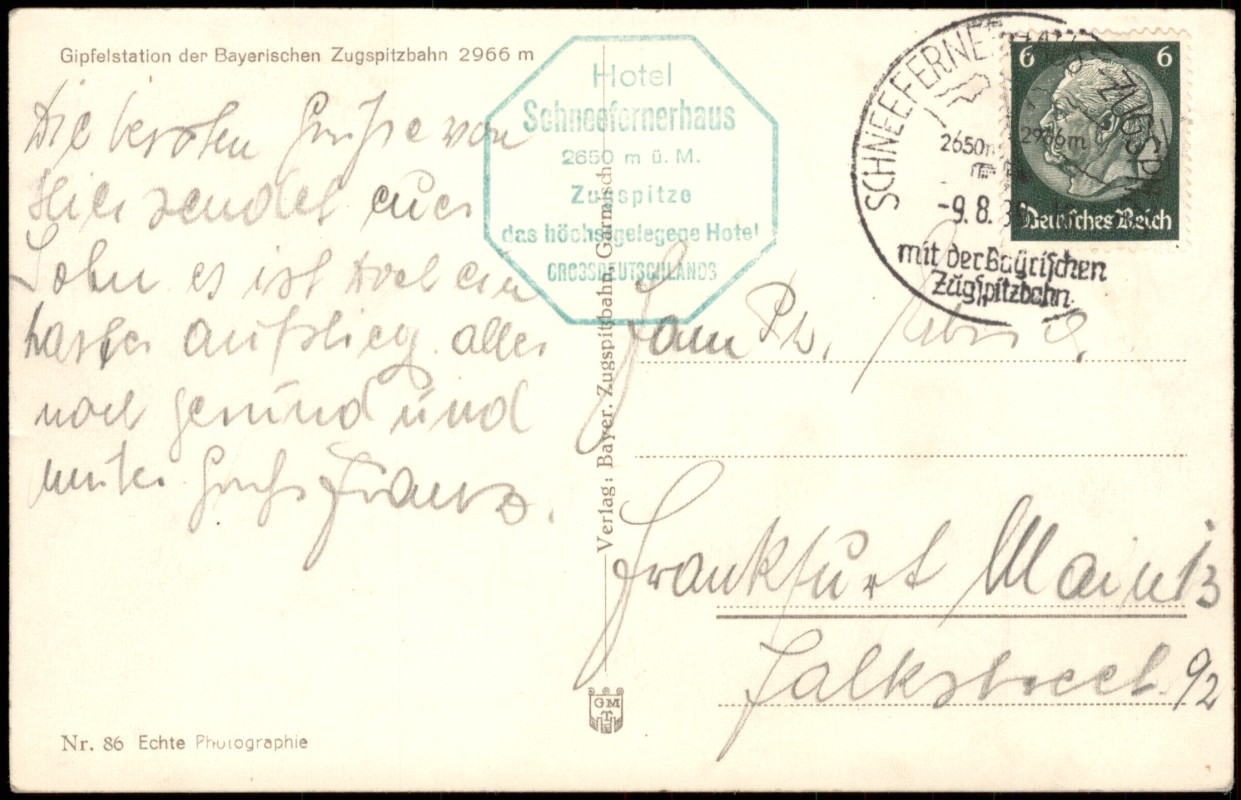 Gipfelstation der Bayerischen Zugspitzbahn 2966 m
Die besten Grüsse von
Hier sendet euer
Sohn es ist doch ein
harter aufstieg. alles
noch gesund und
munter Gruß Franz.
Nr. 86 Echte Photographie
Hotel
Schneefernerhaus
2650 m ü. M.
Zugspitze
das höchstgelegene Hotel
GROSSDEUTSCHLANDS
Verlag: Bayer. Zugspitzbahn, Garmisch
GMT
SCHNEEFERNERHAUS ZUGSPITZE
2650m 2966m
-9.8.3
mit der Bayrischen
Zugspitzbahn.
6 6
Deutsches Reich
Fam Ph.
Frankfurt Main 13
Falkstreet. 92